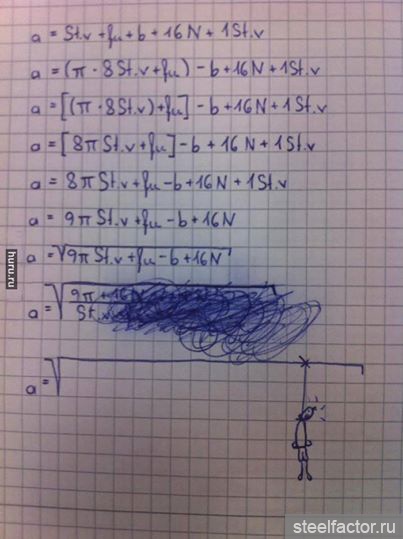 a = St.v + fu + b + 16N + 1St.v
a = (π · 8St.v + fu) - b + 16N + 1St.v
a = [(π · 8St.v) + fu] - b + 16N + 1St.v
a = [8π St.v + fu] - b + 16N + 1St.v
a = 8π St.v + fu - b + 16N + 1St.v
a = 9π St.v + fu - b + 16N
a = √9π St.v + fu - b + 16N
a = √9π + 16N
St.v
a = √
huru.ru
steelfactor.ru